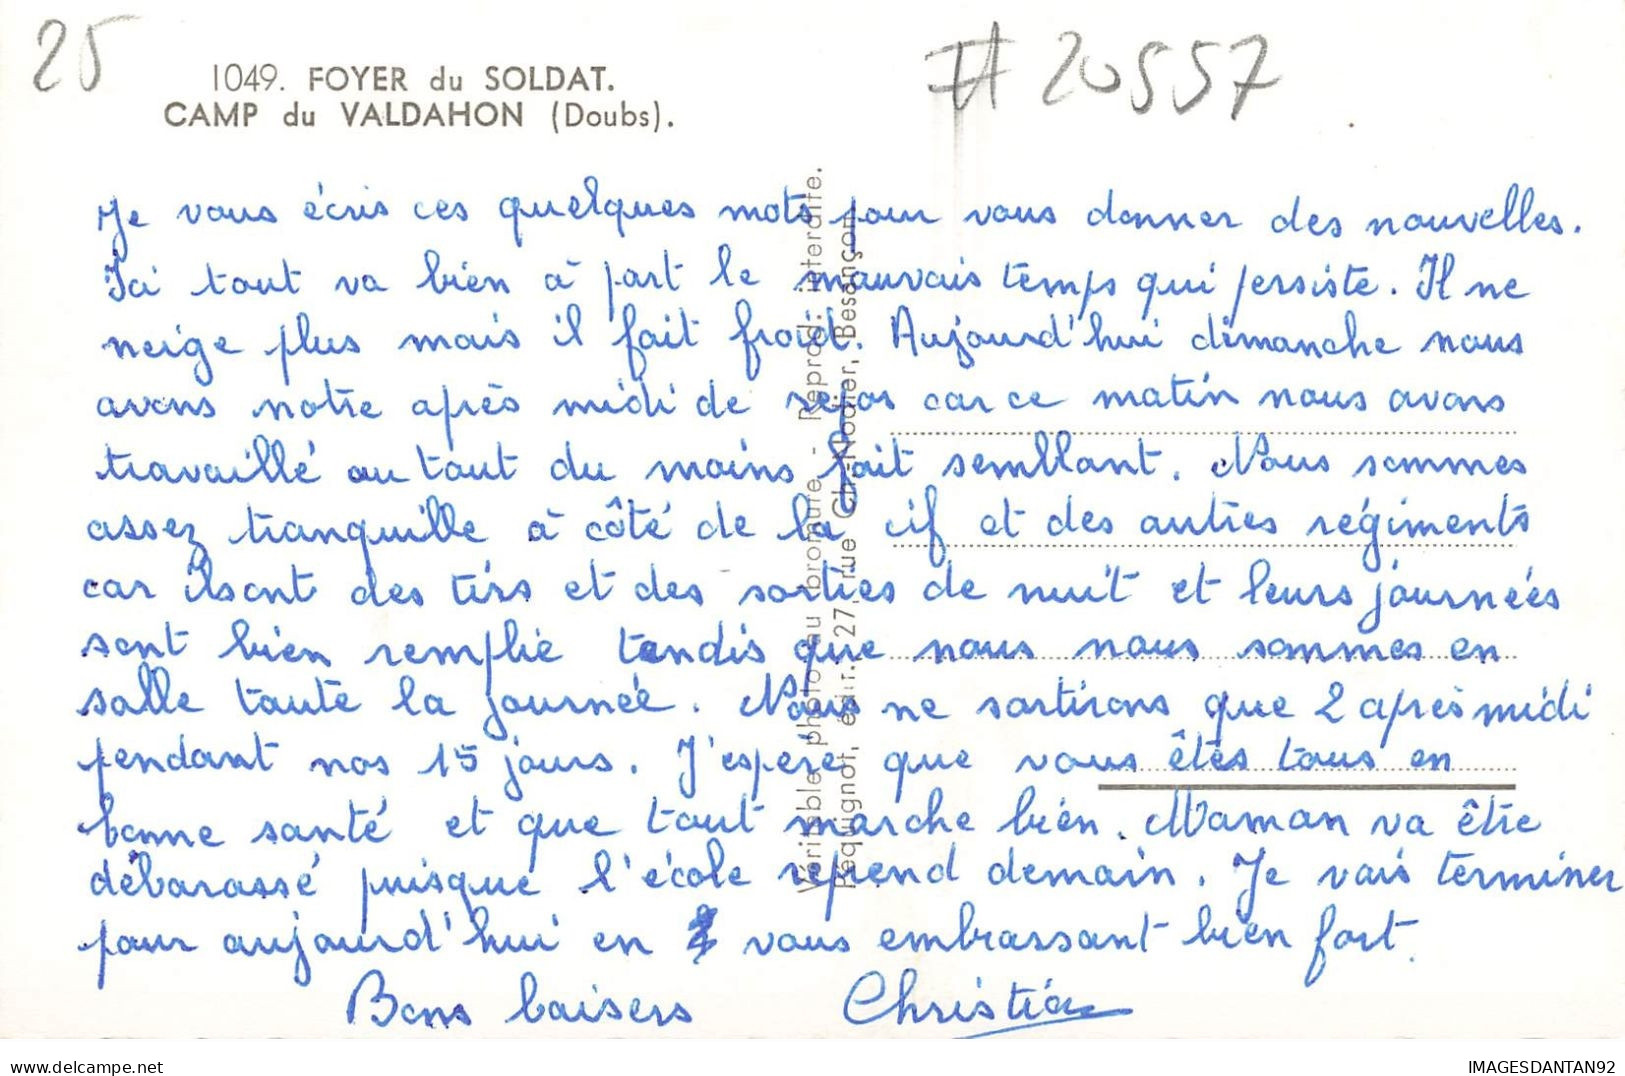 25
# 20557
1049. FOYER du SOLDAT.
CAMP du VALDAHON (Doubs).
Je vous écris ces quelques mots pour vous donner des nouvelles.
Ici tout va bien à part le mauvais temps qui persiste. Il ne
neige plus mais il fait froid. Aujourd'hui dimanche nous
avons notre après midi de repos car ce matin nous avons
travaillé ou tout du moins fait semblant. Nous sommes
assez tranquille à côté de la cif et des autres régiments
car ils ont des tirs et des sorties de nuit et leurs journées
sont bien remplie tandis que nous nous sommes en
salle toute la journée. Nous ne sortirons que 2 après midi
pendant nos 15 jours. J'espère que vous êtes tous en
bonne santé et que tout marche bien. Maman va être
débarassé puisque l'école reprend demain. Je vais terminer
pour aujourd'hui en vous embrassant bien fort.
Bons baisers Christian
Véritable photo au bromure - Reprod. interdite.
Réquignot, édit. 27, rue Ch. Nodier, Besançon
delcampe.net
IMAGESDANTAN92